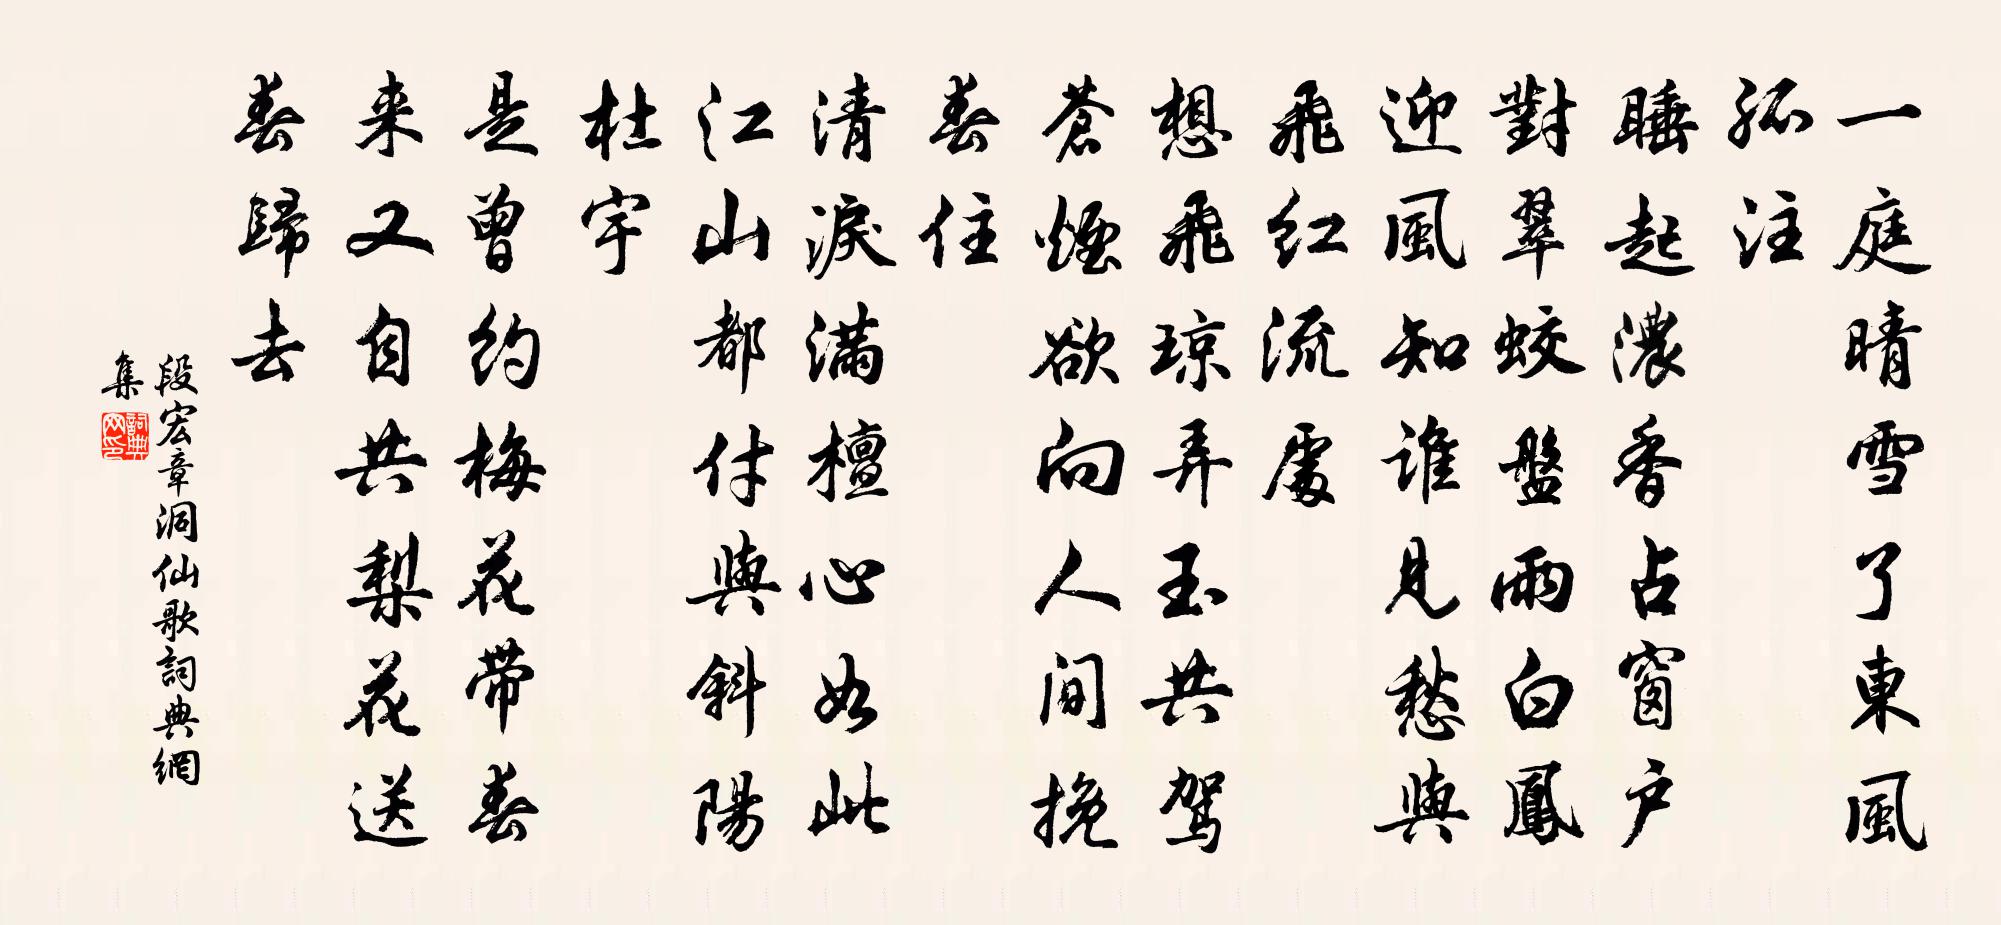 一庭晴雪了東風
孤注
睡起濃香占窗户
對翠蛟盤雨白鳳
迎風知誰見愁與
飛紅流處
想飛瓊弄玉共駕
蒼煙欲向人间挽
春住
清淚滿檀心如此
江山都付與斜陽
杜宇
是曾約梅花带春
来又自共梨花送
春歸去
段宏章洞仙歌詞典網
集
詞典
网印